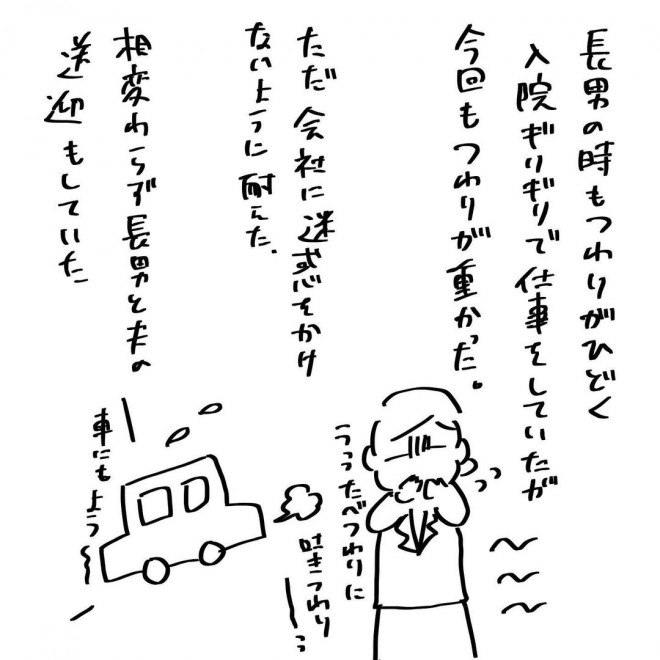 長男の時もつわりがひどく
入院ギリギリで仕事をしていたが
今回もつわりが重かった。
ただ会社に迷惑をかけ
ないように耐えた.
相変わらず長男と夫の
送迎もしていた
うったべつわりに
吐きつわり
ーっ
車にもよう〜